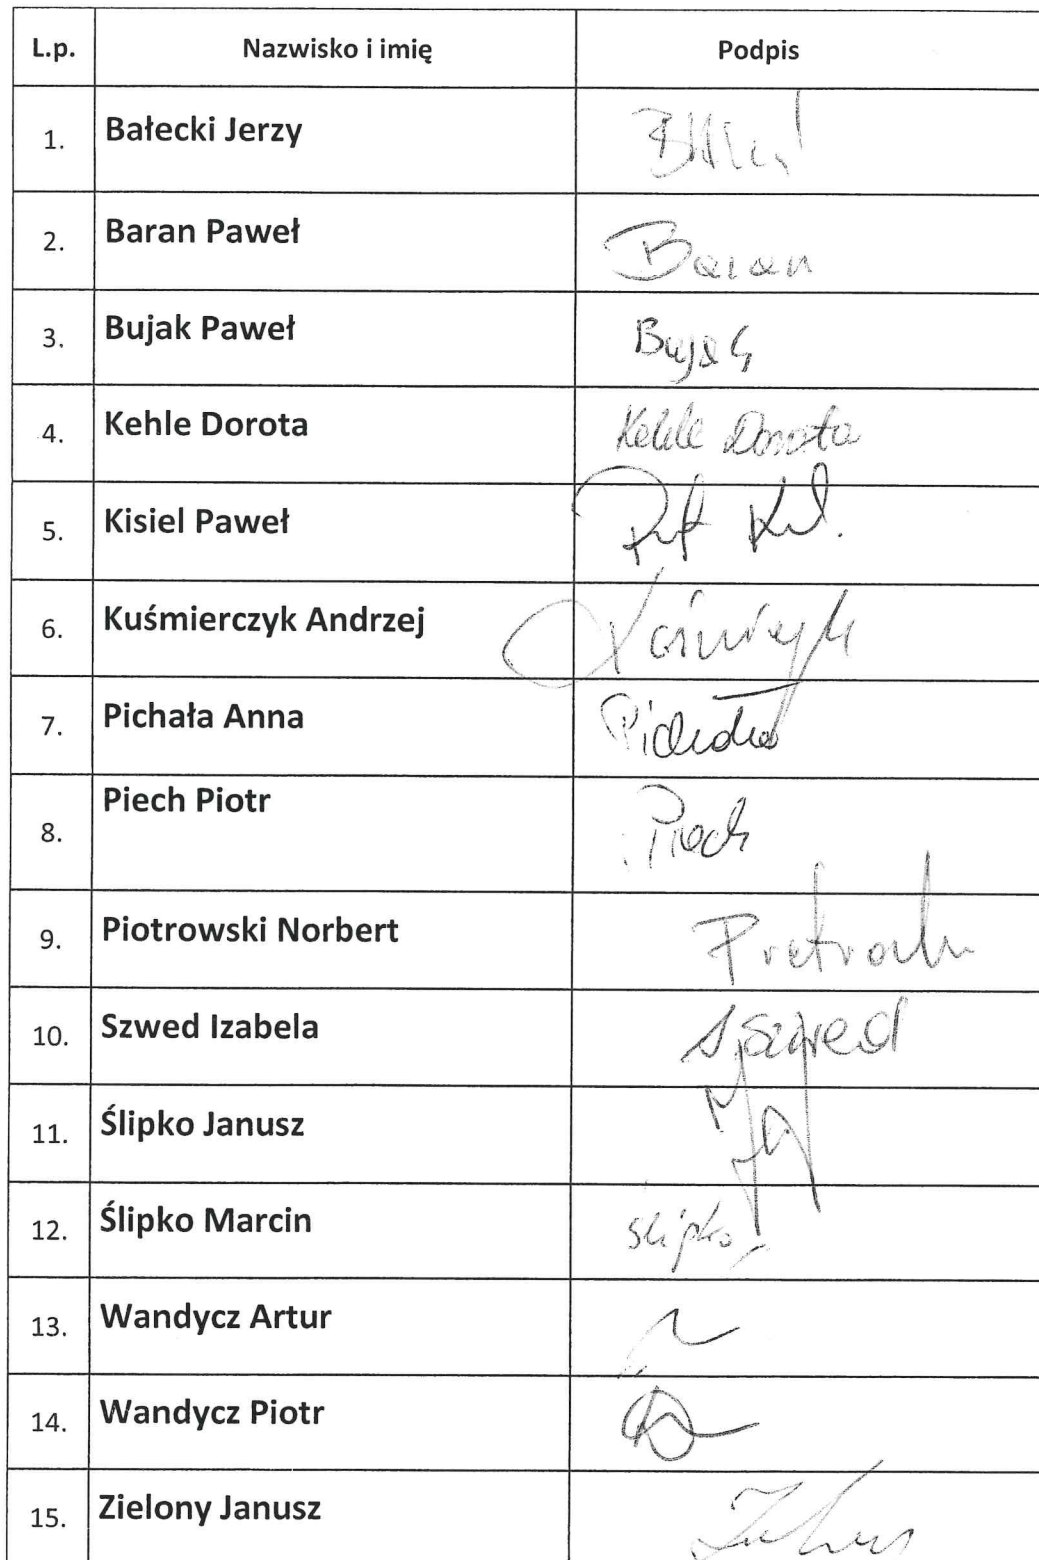 L.p. Nazwisko i imię Podpis
1. Bałecki Jerzy
2. Baran Paweł Baran
3. Bujak Paweł Bujak
4. Kehle Dorota Kehle Dorota
5. Kisiel Paweł
6. Kuśmierczyk Andrzej
7. Pichała Anna Pichała
8. Piech Piotr Piech
9. Piotrowski Norbert
10. Szwed Izabela I. Szwed
11. Ślipko Janusz
12. Ślipko Marcin Ślipko
13. Wandycz Artur
14. Wandycz Piotr
15. Zielony Janusz